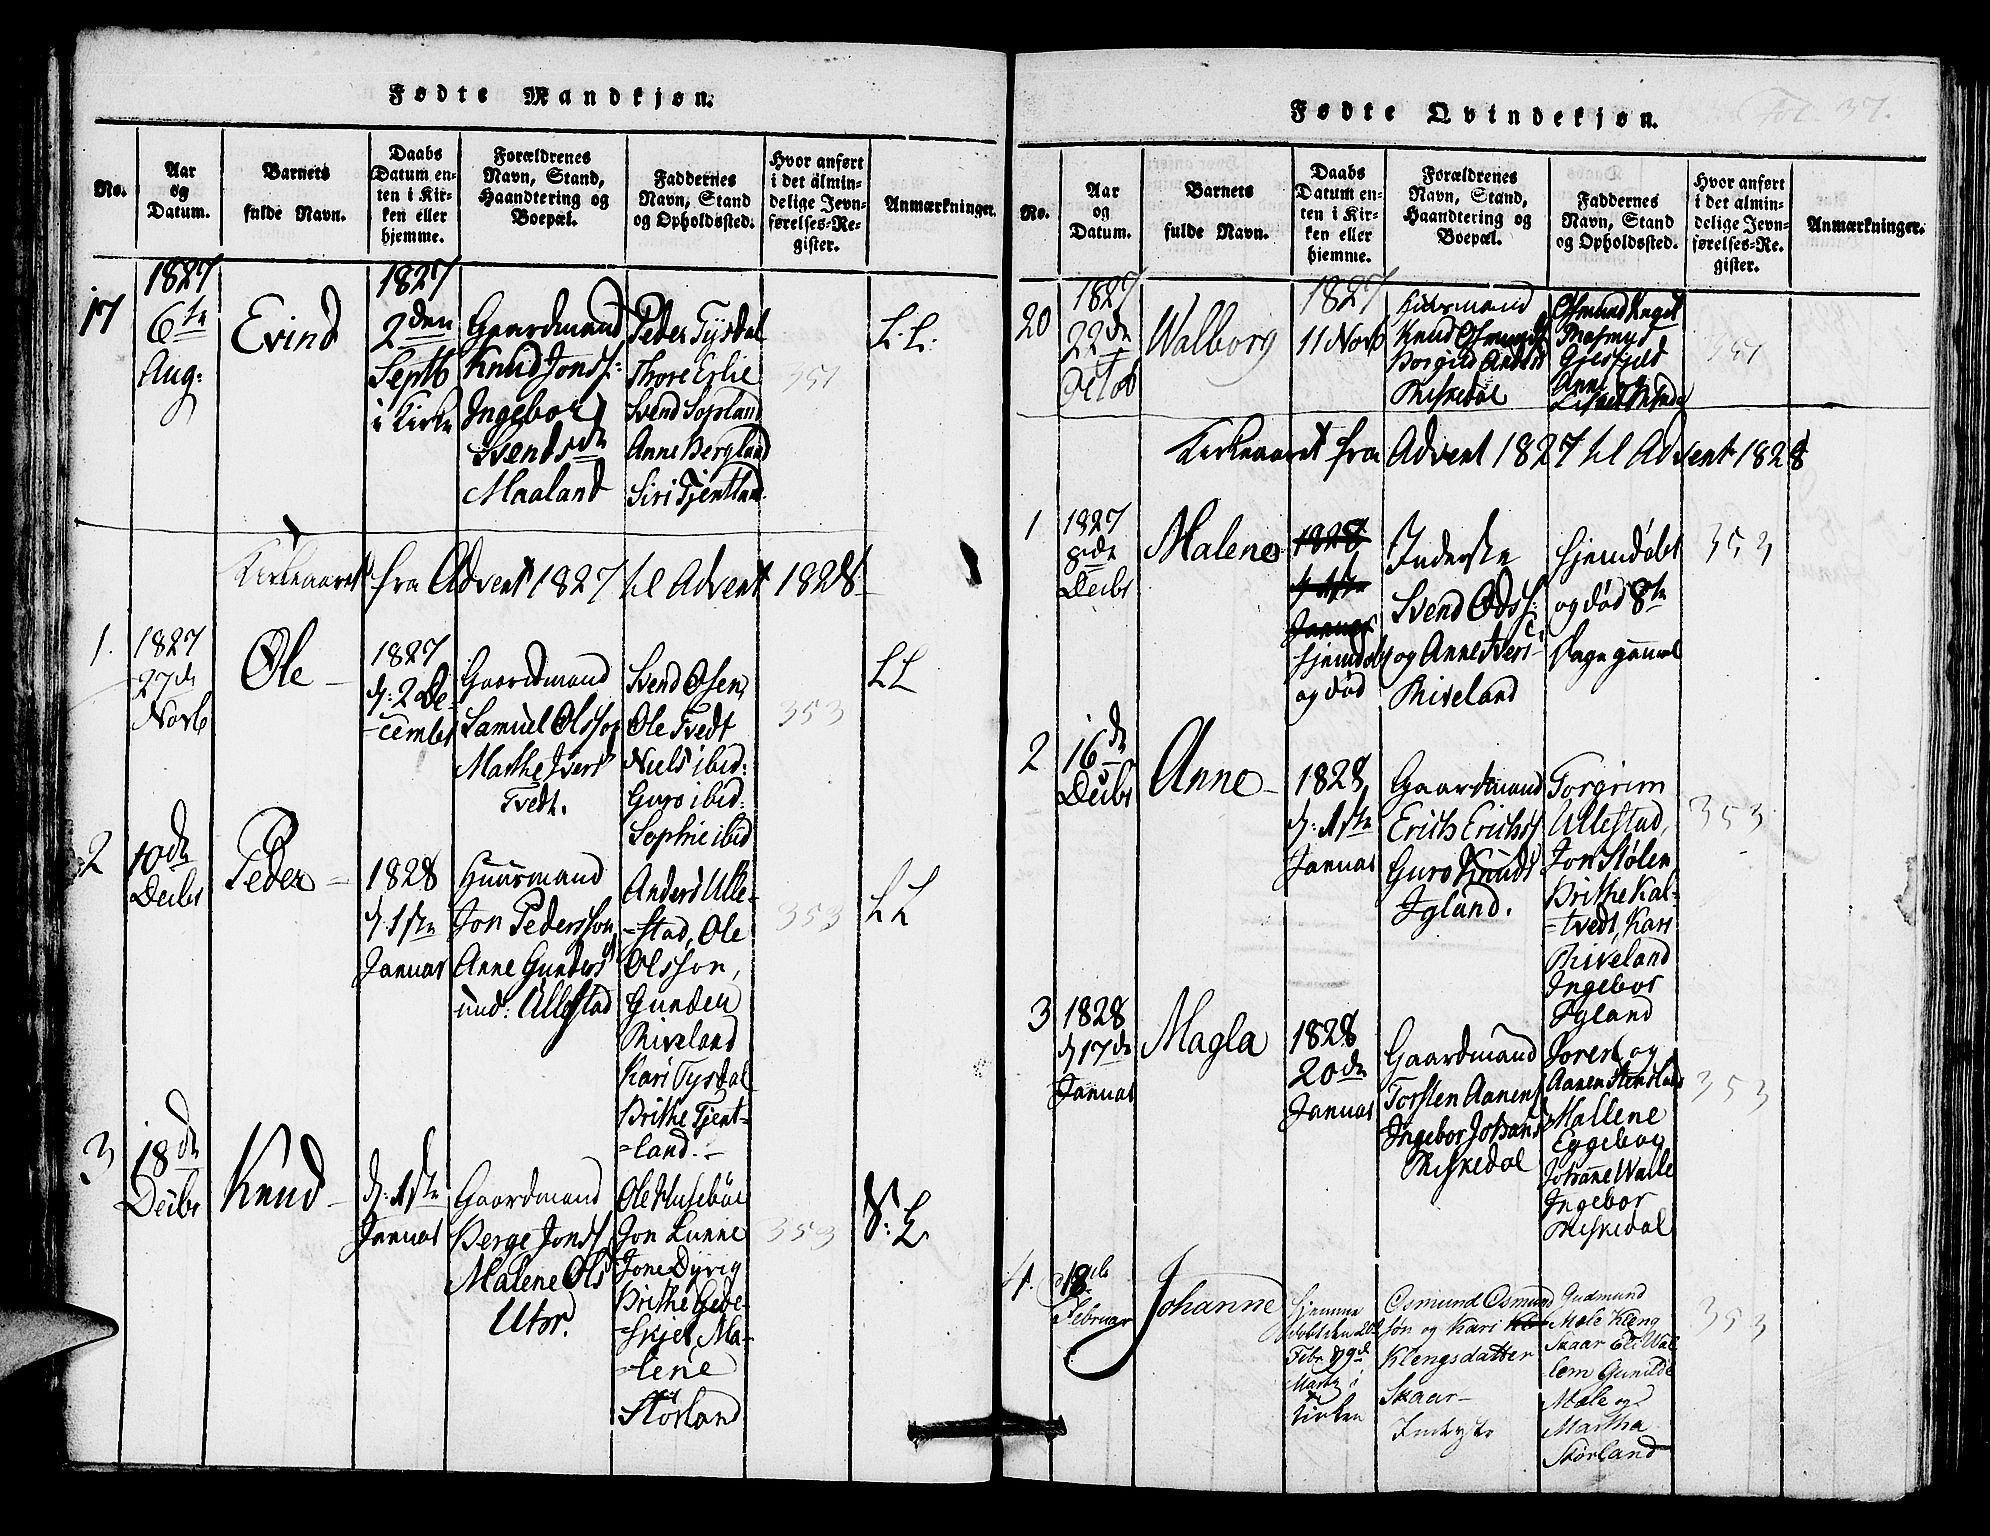 Fødte Mandkjøn.
No.
Aar
og
Datum.
Barnets
fulde Navn.
Daabs
Datum en-
ten i Kir-
ken eller
hjemme.
Forældrenes
Navn, Stand,
Haandtering og
Boepæl.
Faddernes
Navn, Stand
og Opholdssted.
Hvor anført
i det almin-
delige Jevn-
førelses-Re-
gister.
Anmærkninger.
17
1827
6te
Aug:
Evind
1827
2den
Septb
i Kirke
Gaardmand
Knud Jonss:
Ingebor
Svendsdtr
Maaland
Peder Tysdal
Thore Eslie
Svend Sopland
Anne Bergland
Siri Tjentland
351
L.L.
Kirkeaaret fra Advent 1827 til Advent 1828
1.
1827
27de
Novb
Ole
1827
d: 2 De-
cembr
Gaardmand
Samuel Olsson
Marthe Ivers
Tvedt.
Svend Osen,
Ole Tvedt
Niels ibid:
Guro ibid:
Sophie ibid
353
LL
2
10de
Decbr
Peder
1828
d. 1ste
Januar
Huusmand
Jon Pedersson
Anne Gunders
und: Ullestad
Anders Ulle-
stad, Ole
Olsson,
Gunder
Riveland
Kari Tysdal
Brithe Tjent-
land.
353
LL
3
18de
Decbr
Knud
d. 1ste
Januar
Gaardmand
Berge Jonss
Malene Ols
Utør.
Ole Husebøe
Jon Lunne
Jone Dyvig
Brithe Gede-
skjel Ma-
lene
Størland
353
S: L
Fødte Qvindekjøn.
Fol. 37.
No.
Aar
og
Datum.
Barnets
fulde Navn.
Daabs
Datum en-
ten i Kir-
ken eller
hjemme.
Forældrenes
Navn, Stand,
Haandtering og
Boepæl.
Faddernes
Navn, Stand
og Opholdssted.
Hvor anført
i det almin-
delige Jevn-
førelses-Re-
gister.
Anmærkninger.
20
1827
22de
Octob
Walborg
1827
11 Novb
Huusmand
Knud Osmunds
Borgild Anders
Miskedal
Osmund
Rasmus
Gjesfjeld
Anne
351
Kirkeaaret fra Advent 1827 til Advent 1828
1
1827
8de
Decbr
Malene
1828
d. 1ste
Januar
hjemdøbt
og død
Inderste
Svend Odss:
og Anne Ivers
Riveland
hjemdøbt
og død 8te
Dage gammel
353
2
16de
Decbr
Anne
1828
d: 1ste
Januar
Gaardmand
Erich Erichs
Guro Knuds
Igland.
Torgrim
Ullestad,
Jon Stølen
Brithe Kal-
tvedt, Kari
Riveland
Ingebor
Igland
353
3
1828
d 17de
Januar
Magla
1828
20de
Januar
Gaardmand
Torsten Aanens
Ingebor Johans
Miskedal
Soren og
Aanen Stensland
Mallene
Eggebøy
Johanne Walle
Ingebor
Miskedal
353
4.
18
Februar
Johanne
hjemme
døbt den 20d
Febr & 9de
Marts i
Kirken
Osmund Osmund
søn og Kari
Klengsdatter
Skaar
Inderste
Gudmund
Mæle Kleng
Skaar Eli Wal
lem Gunilde
Mæle og
Martha
Størland
353